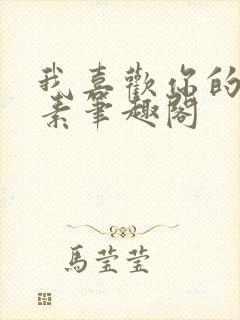 我喜歡你的
素筆趣閣
馬莹莹